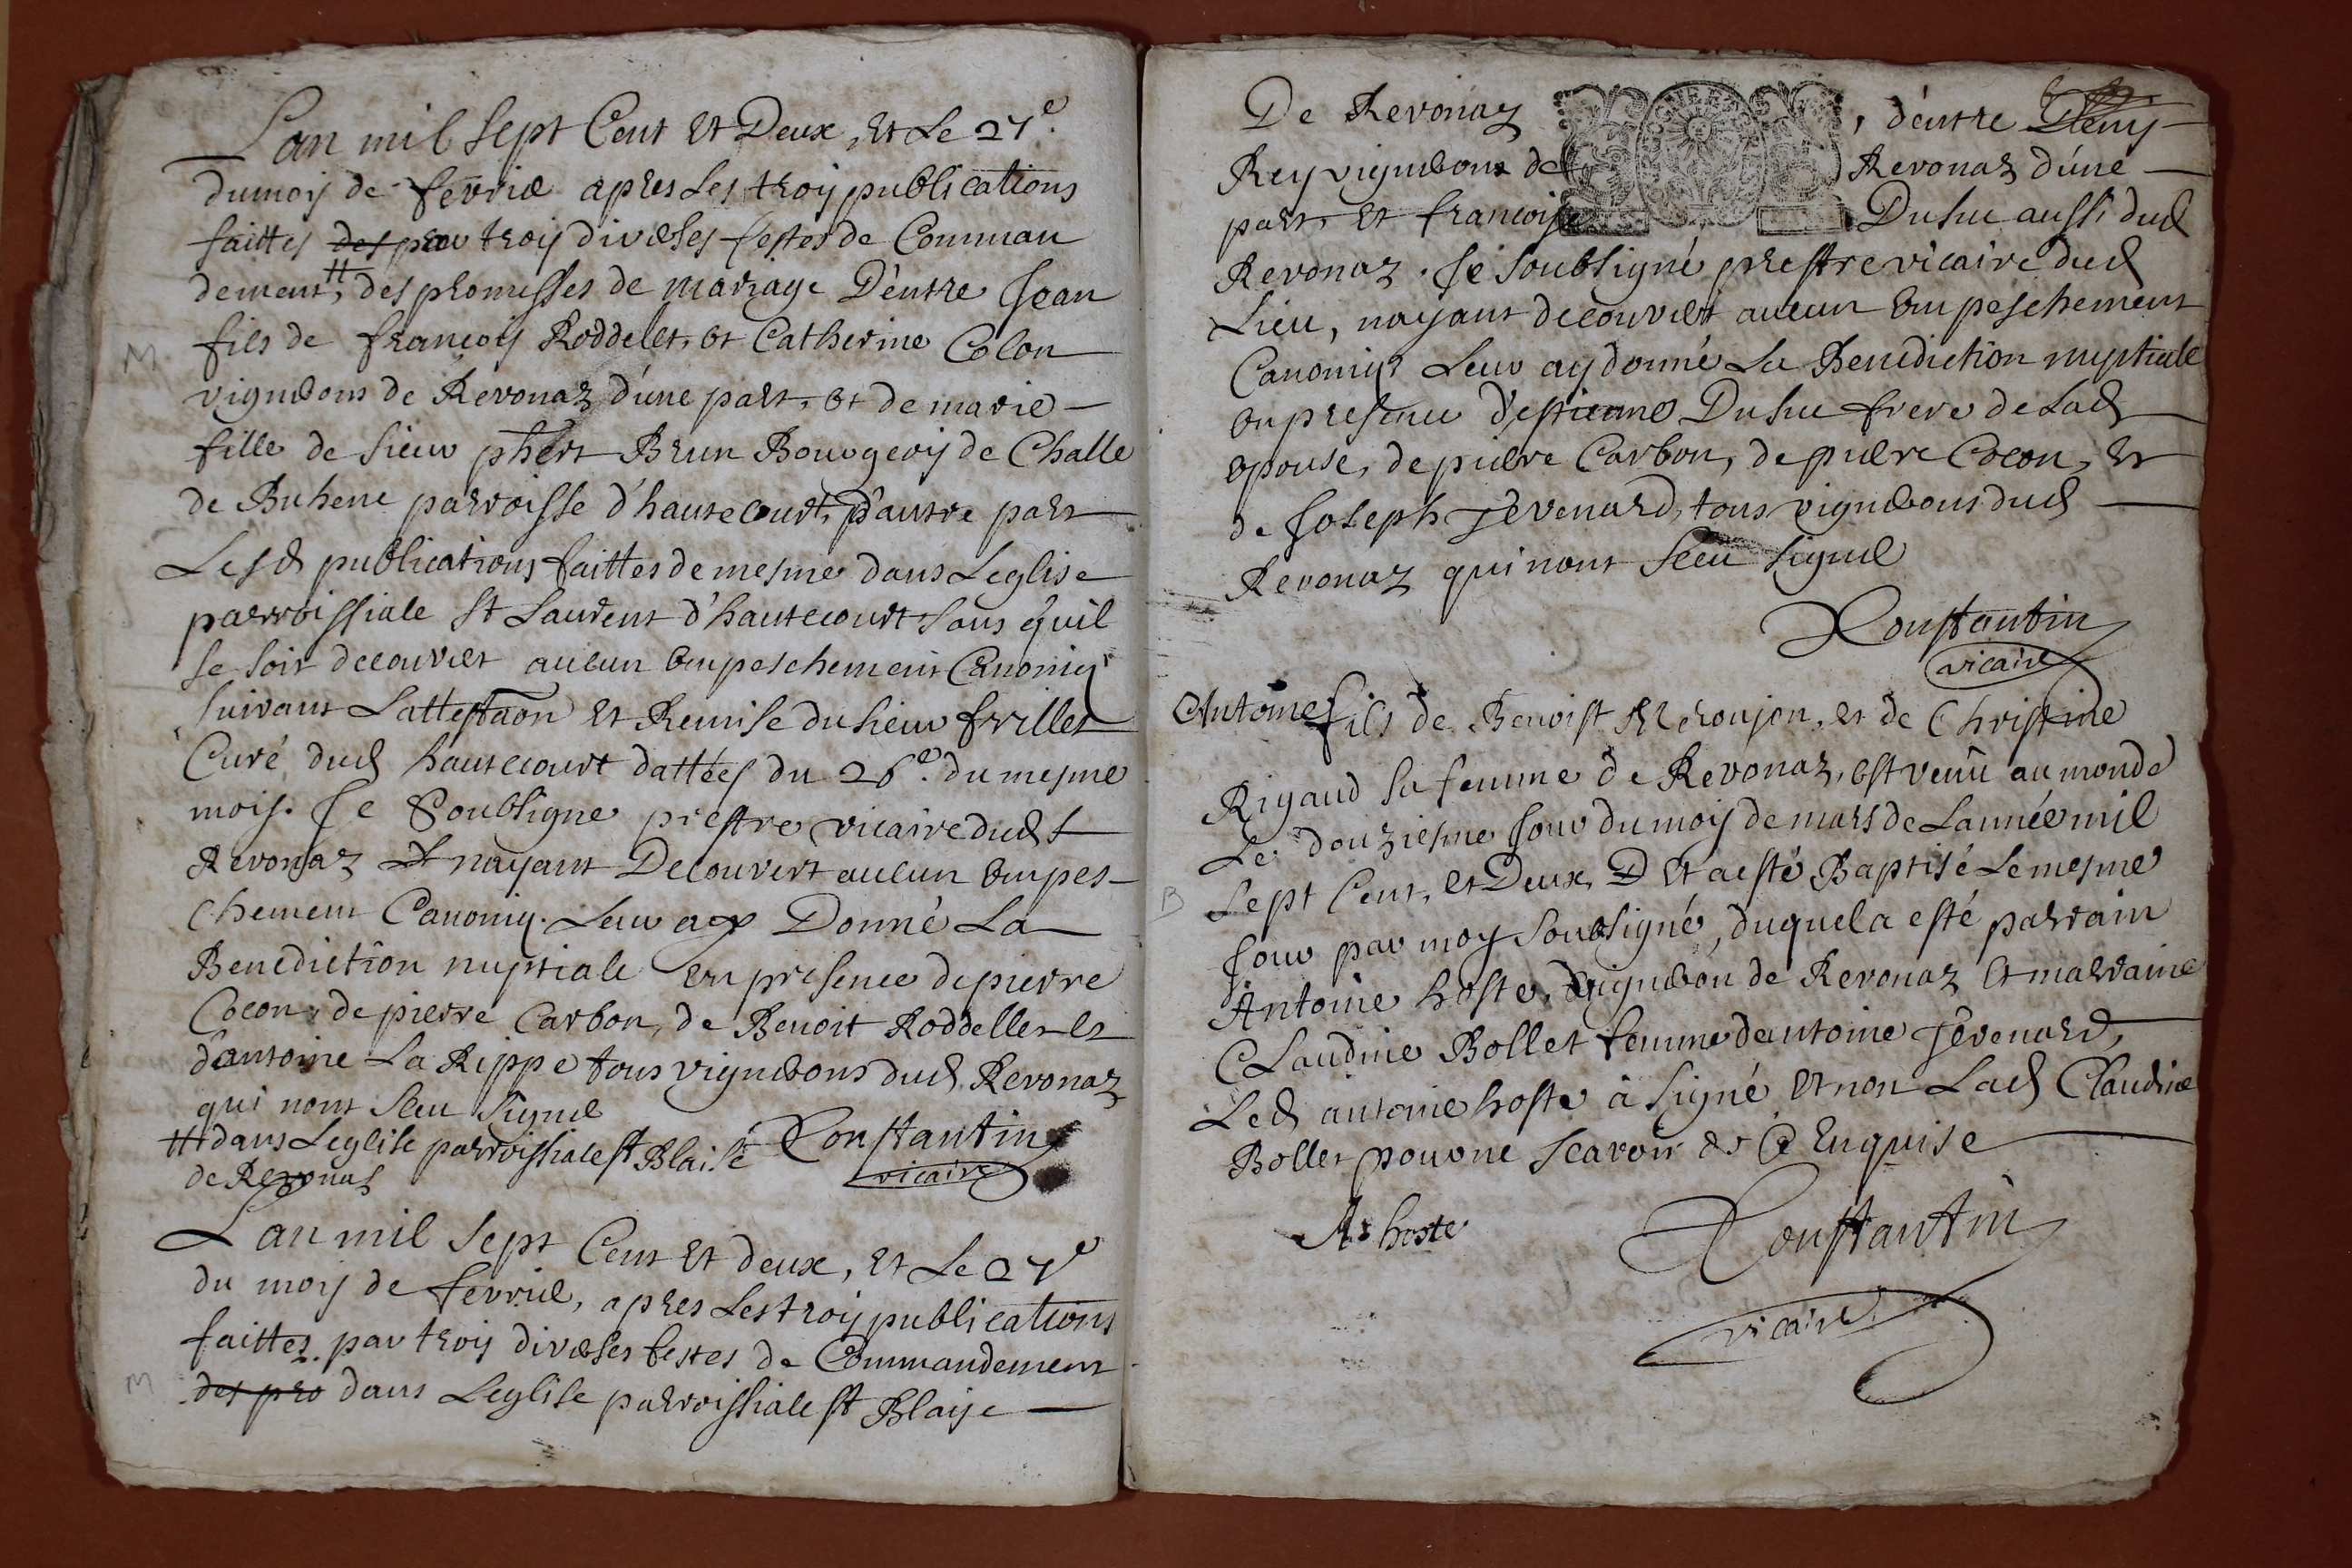 L'an mil sept Cent et Deux, et Le 27e.
du mois de fevrier apres Les trois publications
faittes des par trois diverses festes de Comman
dement, # des promesses de mariage D'entre Jean
fils de francois Roddelet, et Catherine Colon
vignerons de Revonaz d'une part, et de marie
fille de sieur phert Brun Bourgeois de Challe
de Buhene parroisse d'hautecourt, d'autre part
Lesd publications faittes de mesme dans Leglise
parroissiale St Laurent d'hautecourt sans quil
se soit decouvert aucun empeschement Canoniq
suivant Lattestaon et Remise du sieur frillet
Curé dud hautecourt dattées du 26e. du mesme
mois. Je Soubsigne prestre vicaire dud
Revonaz nayant Decouvert aucun empes-
chement Canoniq. Leur ay Donné La
Benediction nuptiale en presence de pierre
Cocon, de pierre Carbon, de Benoit Roddellet et
d'antoine La Rippe tous vignerons dud Revonaz
qui nont sceu signer
# dans Leglise parroissiale st Blaise Constantin
de Revonas vicaire
L'an mil sept Cent et deux, et Le 27e
du mois de fevrier, apres Les trois publications
faittes par trois diverses festes de Commandement
des pro dans Leglise parroissiale st Blaise
M
M
De Revonaz , d'entre Deny
Rey vigneron de Revonaz d'une
part, et francoise Dusuc aussi dud
Revonaz. Je soubsigné prestre vicaire dud
Lieu, nayant decouvert aucun empeschement
Canoniq Leur ay donné La Benediction nuptiale
en presence d'estienne Dusuc frere de Lad
epouse, de pierre Carbon, de pierre Cocon, et
de Joseph Jevenard, tous vignerons dud
Revonaz qui nont sceu signer
Constantin
vicaire
Antoine fils de Benoist et de Christine
Rigaud sa femme de Revonaz, est venu au monde
Le douziesme jour du mois de mars de Lannée mil
sept Cent, et Deux, D et a esté Baptisé Le mesme
B
jour par moy soubsigné, duquel a esté parrain
Antoine hoste, vigneron de Revonaz et marraine
Claudine Bollet femme dantoine Jevenard,
Led antoine hoste à signé et non Lad Claudine
Bollet pour ne scavoir de Ce Enquise
A: hoste Constantin
vicaire